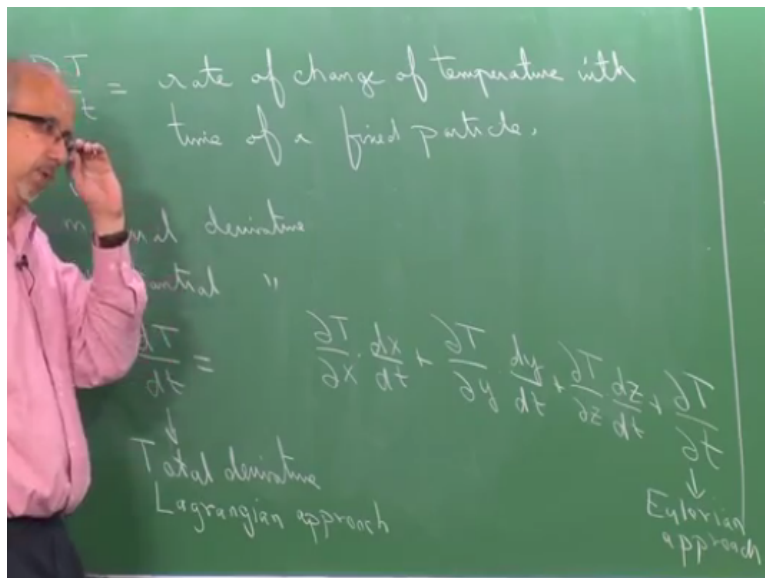 DT/Dt = rate of change of temperature with
time of a fixed particle.
derivative
"
dT/dt = ∂T/∂x · dx/dt + ∂T/∂y · dy/dt + ∂T/∂z dz/dt + ∂T/∂t
↓ ↓
Total derivative
Lagrangian approach
Eulerian
approach